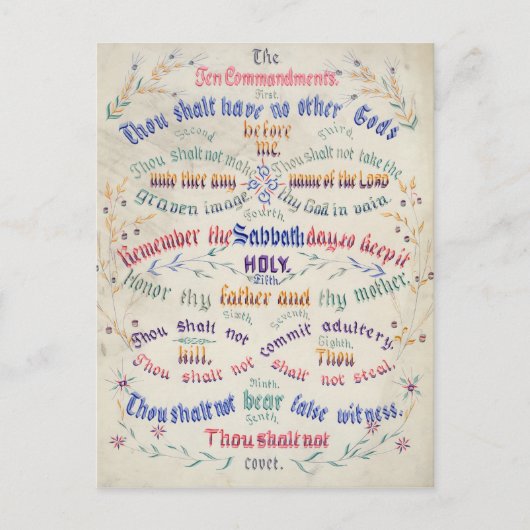 The
Ten Commandments.
First.
Thou shalt have no other Gods
before
me.
Second.
Thou shalt not make
unto thee any
graven image.
Third.
Thou shalt not take the
name of the LORD
thy God in vain.
Fourth.
Remember the Sabbath day, to keep it
HOLY.
Fifth.
Honor thy father and thy mother.
Sixth.
Thou shalt not
kill.
Seventh.
Thou shalt not commit adultery.
Eighth.
Thou shalt not steal.
Ninth.
Thou shalt not bear false witness.
Tenth.
Thou shalt not
covet.